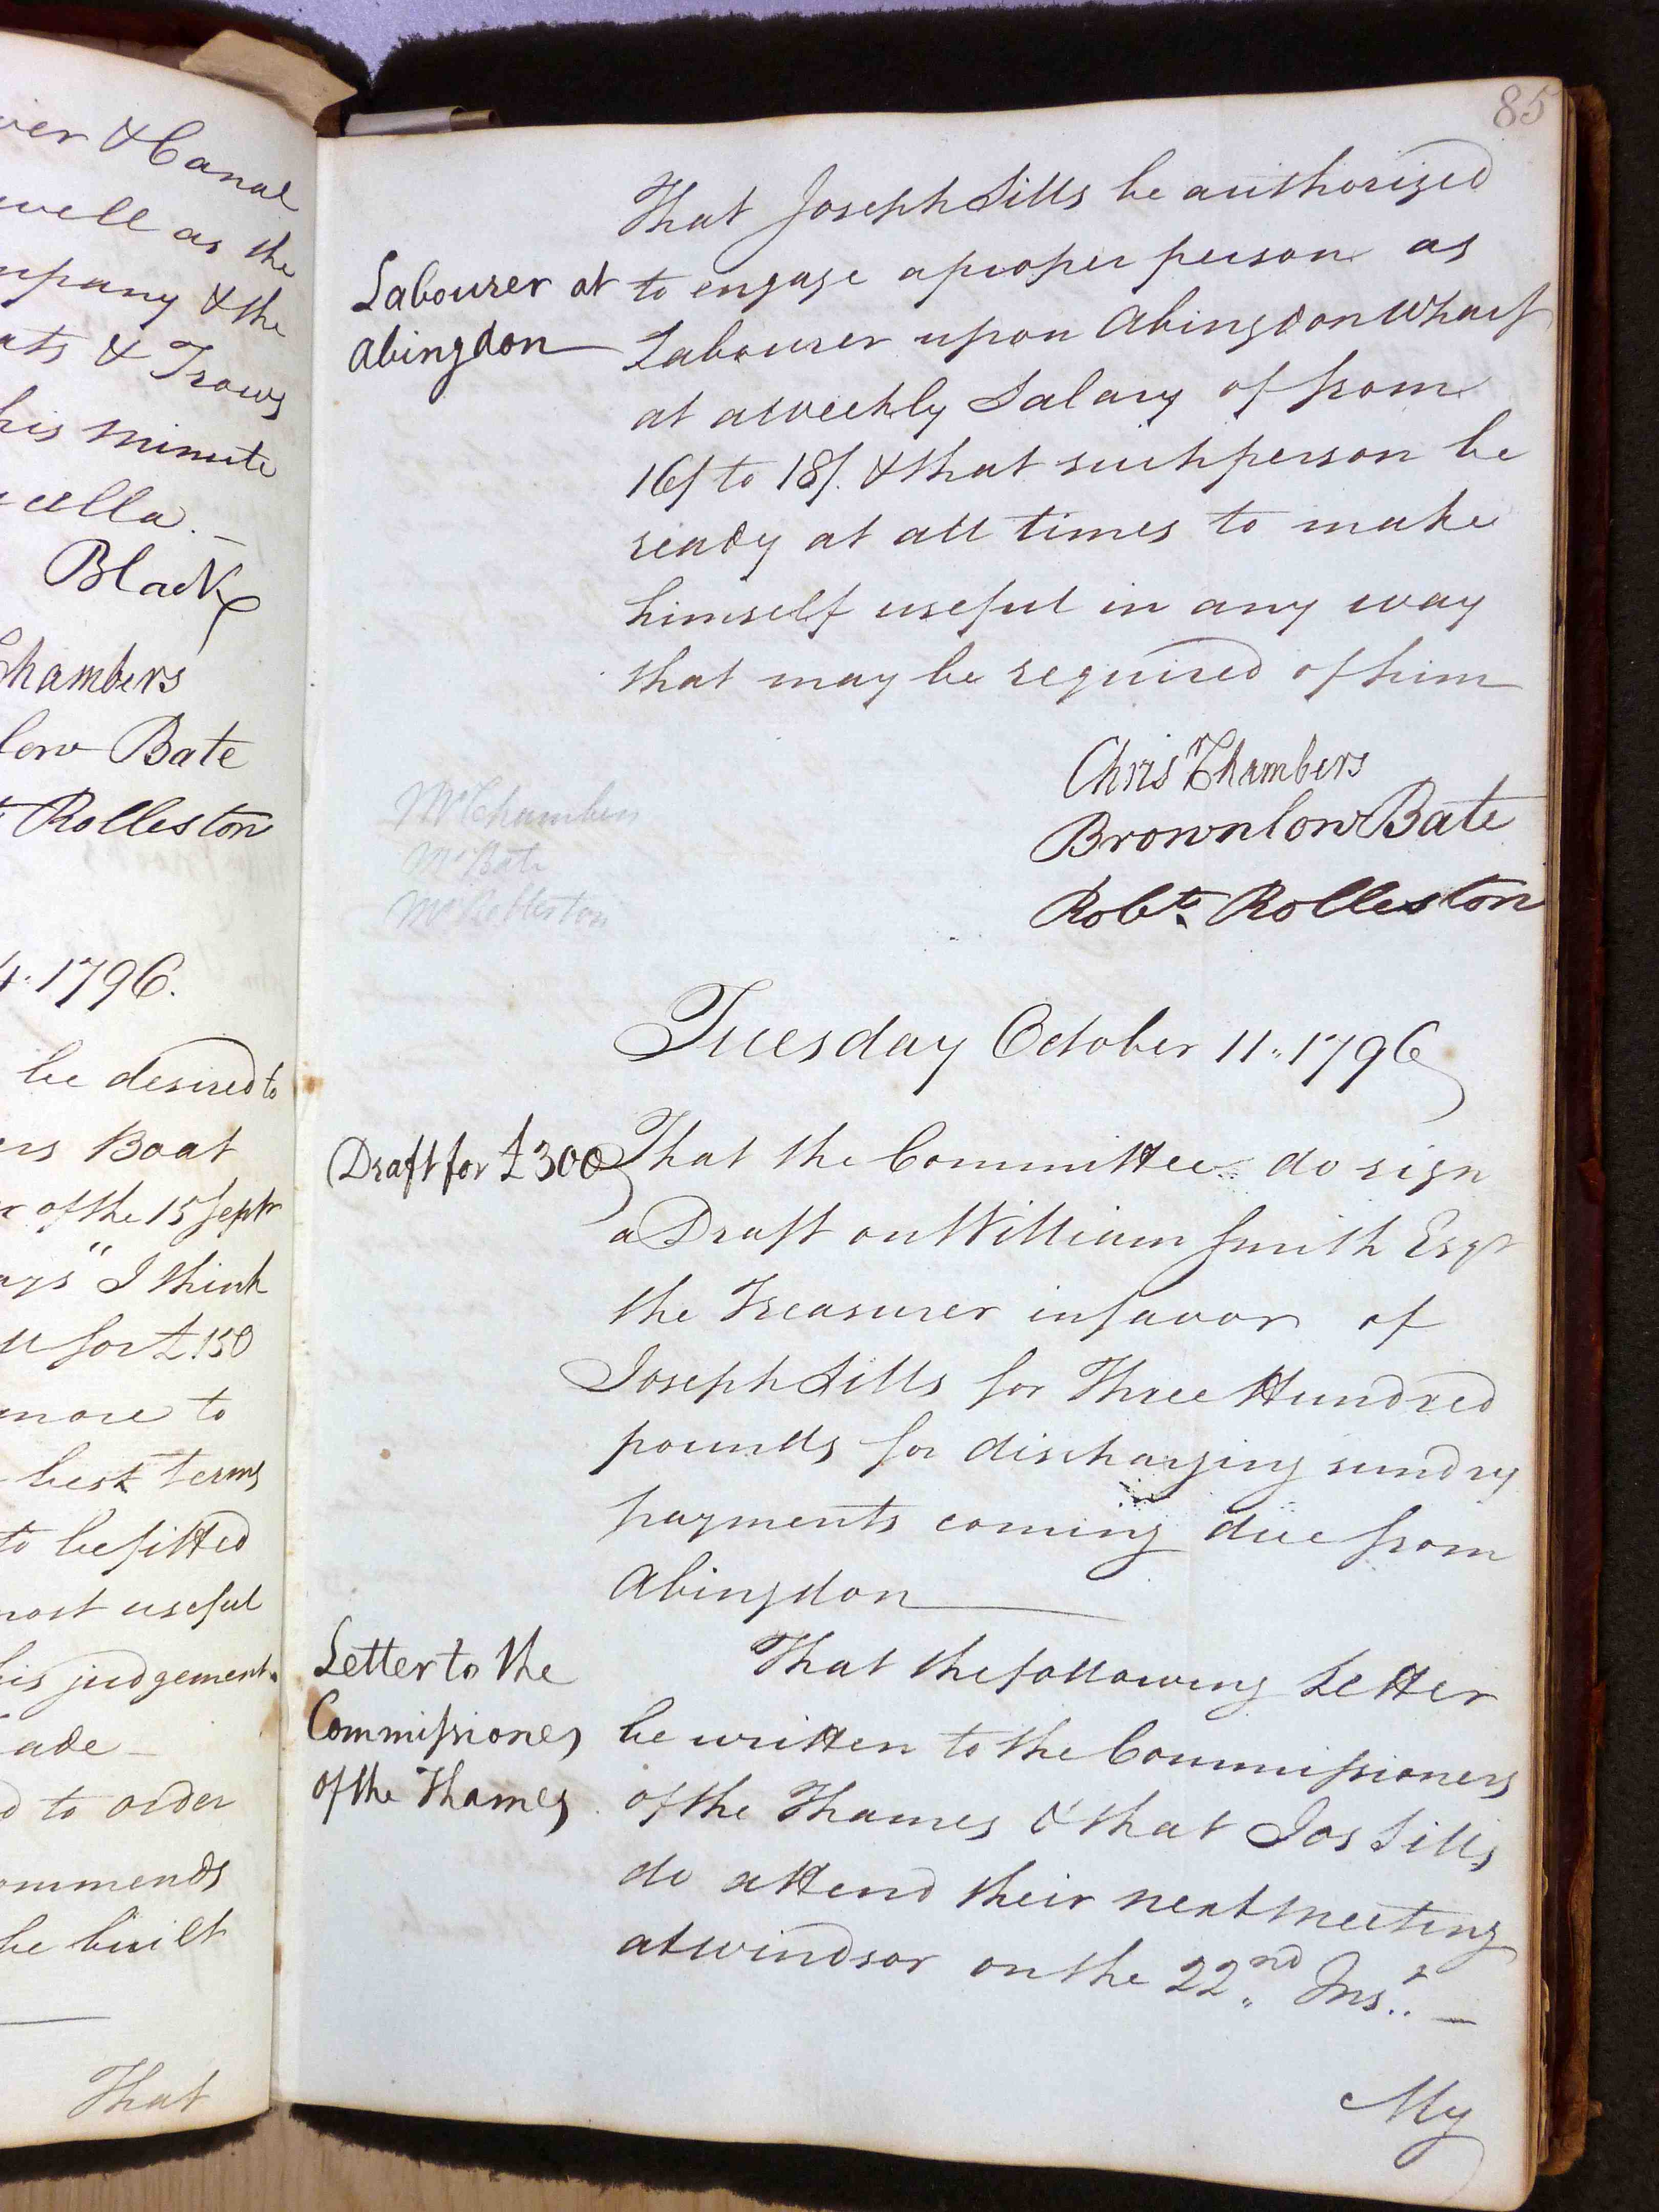 ver & Canal
well as the
mpany & the
ats & Trows
his minute
cella.
Black
Chambers
low Bate
t Rolleston
4. 1796.
be desired to
ers Boat
r of the 15 Septr
ays "I think
u for £150
more to
best terms
to be fitted
most useful
his judgement
ade
d to order
ommends
be built
That
85
That Joseph Sills be authorized
Labourer at
Abingdon
to engage a proper person as
Labourer upon Abingdon Wharf
at a weekly Salary of from
16/ to 18/. & that such person be
ready at all times to make
himself useful in any way
that may be required of him
Chrisr Chambers
Brownlow Bate
Robt. Rolleston
Mr Chambers
Mr Bate
Mr Rolleston
Tuesday October 11. 1796
Draft for £300
That the Committee do sign
a Draft on William Smith Esqr
the Treasurer in favor of
Joseph Sills for Three Hundred
pounds for discharging sundry
payments coming due from
Abingdon
Letter to the
Commissioners
of the Thames
That the following Letter
be written to the Commissioners
of the Thames & that Jos Sills
do attend their next meeting
at windsor on the 22nd. Inst. —
My